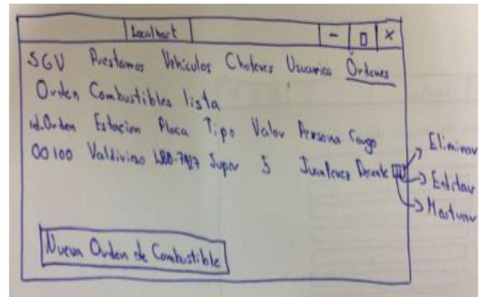 Localhost - □ x
SGV Prestamos Vehiculos Choferes Usuarios Órdenes
Orden Combustibles lista
id.Orden Estacion Placa Tipo Valor Persona Cargo
00100 Valdivieso Super 5 Docente
Eliminar
Editar
Mostrar
Nueva Orden de Combustible